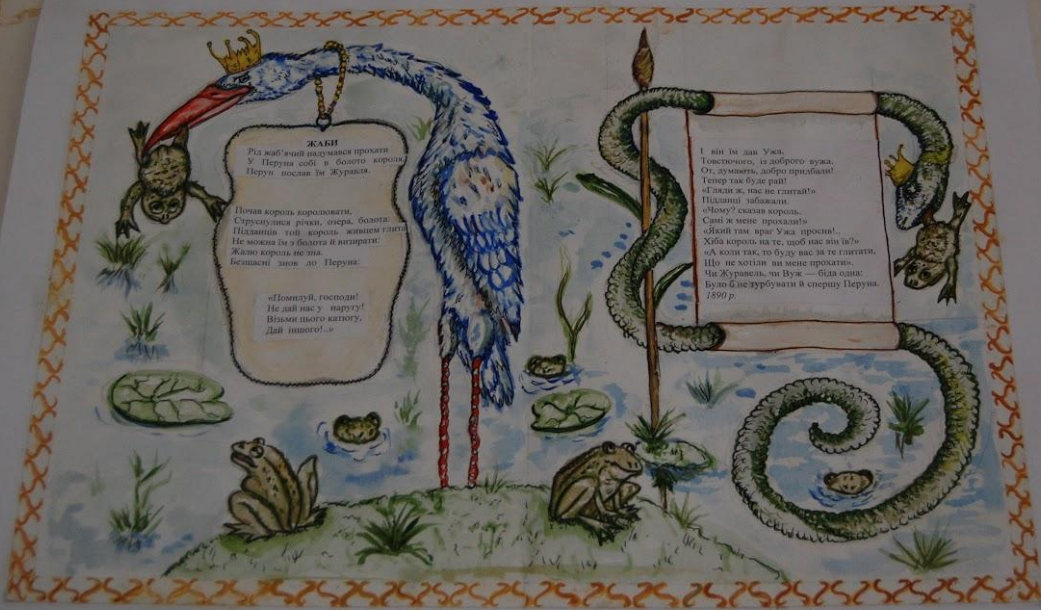 ЖАБИ
Рід жаб’ячий надумався прохати
У Перуна собі в болото короля,
Перун послав їм Журавля.
Почав король королювати,
Струснулися річки, озера, болота:
Підданців той король живцем глита
Не можна їм з болота й визирати:
Жалю король не зна.
Безщасні знов до Перуна:
«Помилуй, господи!
Не дай нас у наругу!
Візьми цього катюгу,
Дай іншого!..»
І він їм дав Ужа,
Товстючого, із доброго вужа,
От, думають, добро придбали!
Тепер так буде рай!
«Гляди ж, нас не глитай!»
Підданці забажали.
«Чому? сказав король.
Самі ж мене прохали!»
«Який там враг Ужа просив!..
Хіба король на те, щоб нас він їв?»
«А коли так, то буду вас за те глитати,
Що не хотіли ви мене прохати».
Чи Журавель, чи Вуж — біда одна:
Було б не турбувати й спершу Перуна.
1890 р.